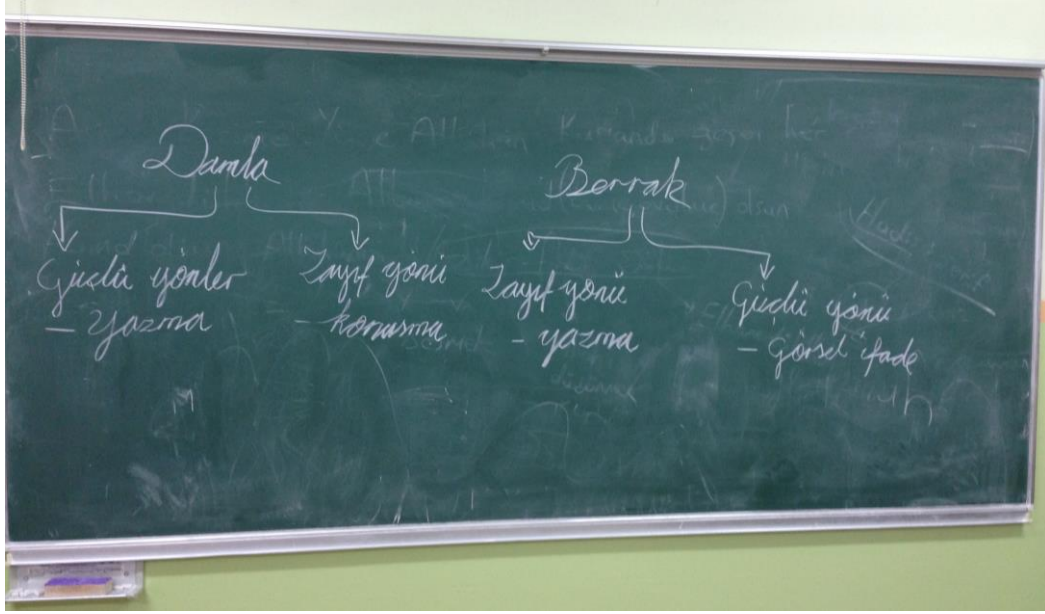 Damla
Güçlü yönler
- Yazma
Zayıf yönü
- konuşma
Berrak
Zayıf yönü
- yazma
Güçlü yönü
- Görsel ifade